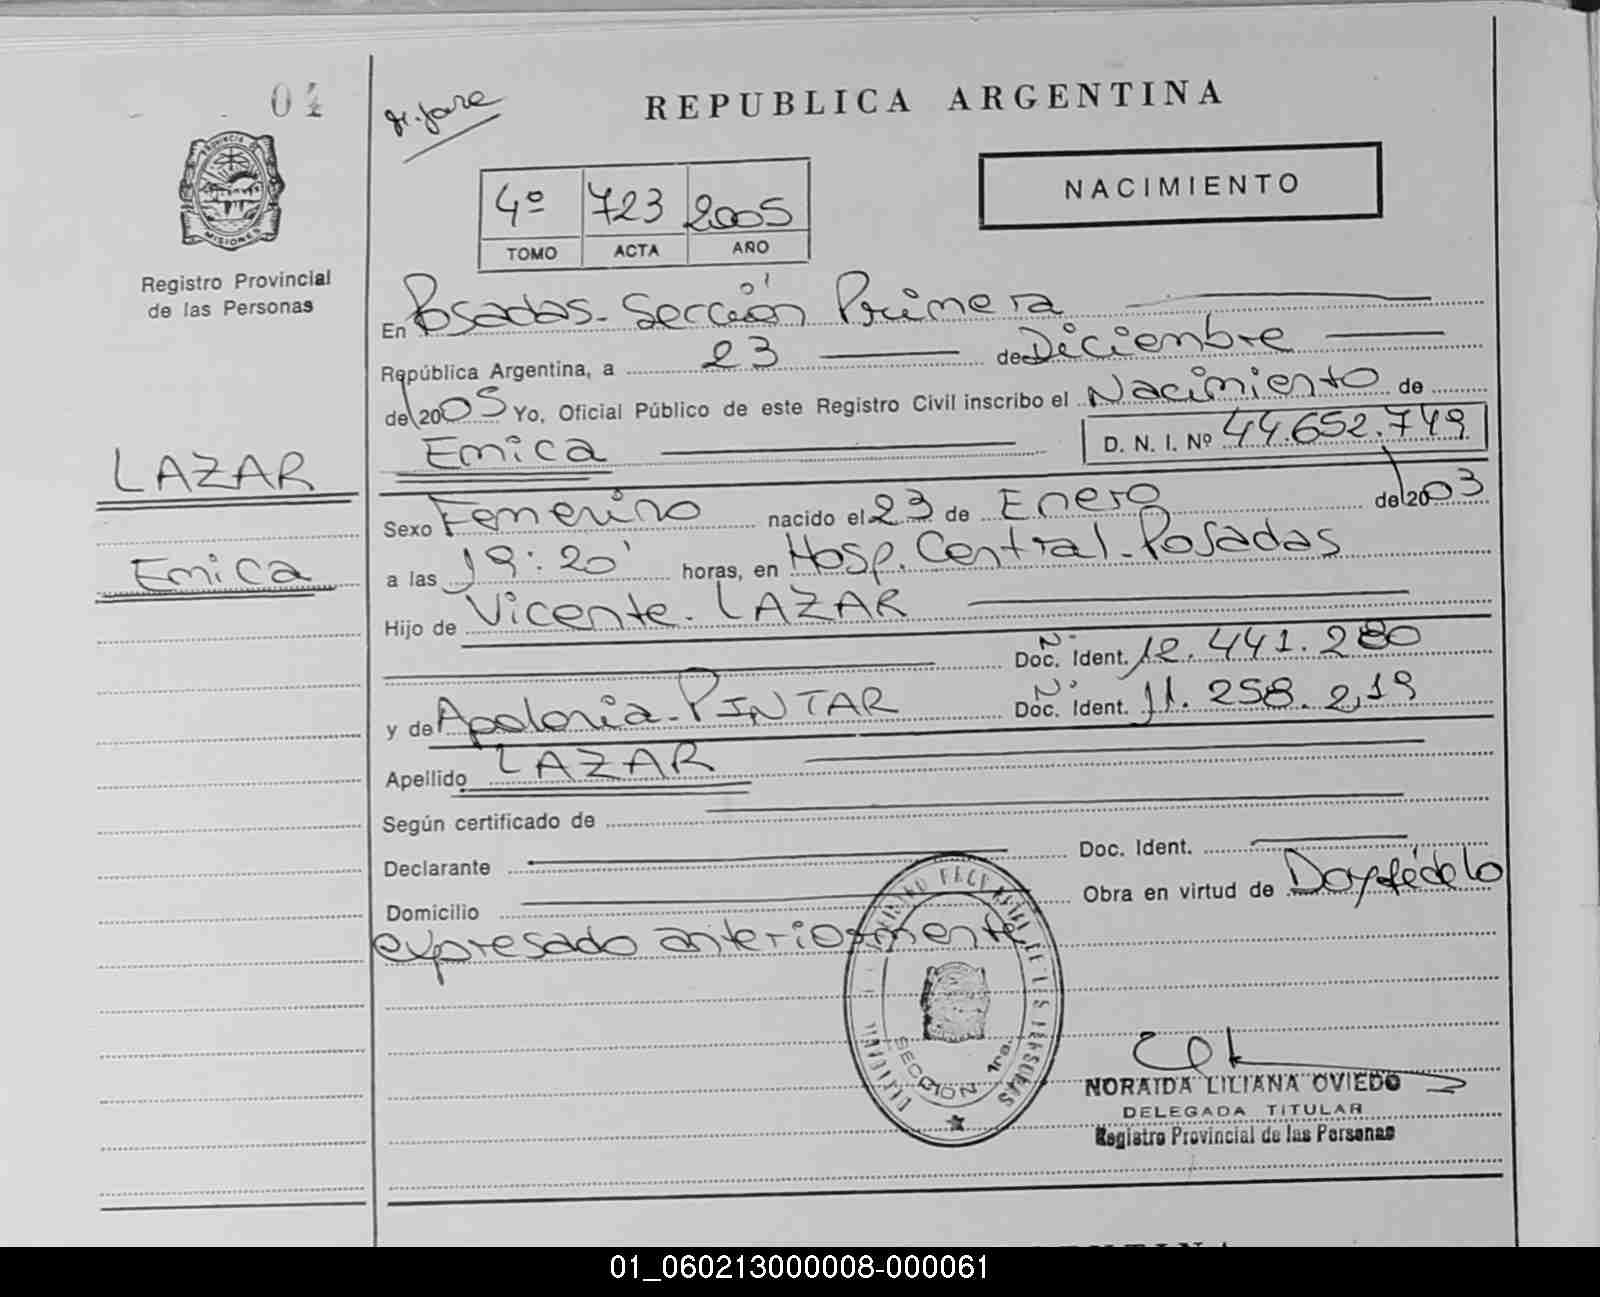 04
REPUBLICA ARGENTINA
PROVINCIA DE
MISIONES
Registro Provincial
de las Personas
NACIMIENTO
4º 723 2005
TOMO ACTA AÑO
En Posadas - Sección Primera
República Argentina, a 23 de Diciembre
de 2005 Yo, Oficial Público de este Registro Civil inscribo el Nacimiento de
Emica D. N. I. Nº 44.652.749
LAZAR
Emica
Sexo Femenino nacido el 23 de Enero de 2003
a las 19:20' horas, en Hosp. Central - Posadas
Hijo de Vicente - LAZAR
Nº
Doc. Ident. 12.441.280
Nº
y de Apolonia - PINTAR Doc. Ident. 11.258.219
Apellido LAZAR
Según certificado de
Declarante Doc. Ident.
Domicilio Obra en virtud de Doy fé de lo
expresado anteriormente
SECCION 1ra.
NORAIDA LILIANA OVIEDO
DELEGADA TITULAR
Registro Provincial de las Personas
01_060213000008-000061